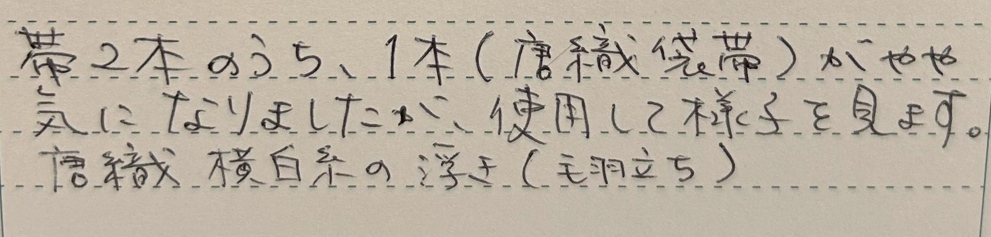 帯2本のうち、1本(唐織袋帯)がやや
気になりましたが、使用して様子を見ます。
唐織 横白糸の浮き(毛羽立ち)